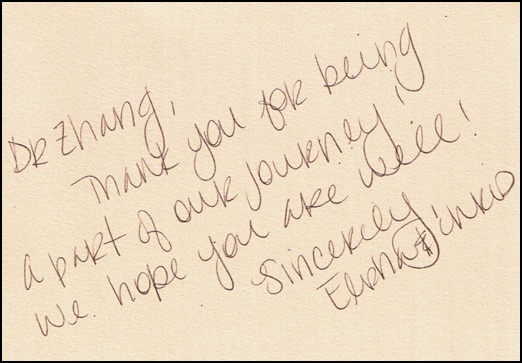 Dr Zhang,
Thank you for being
a part of our journey!
We hope you are well!
Sincerely